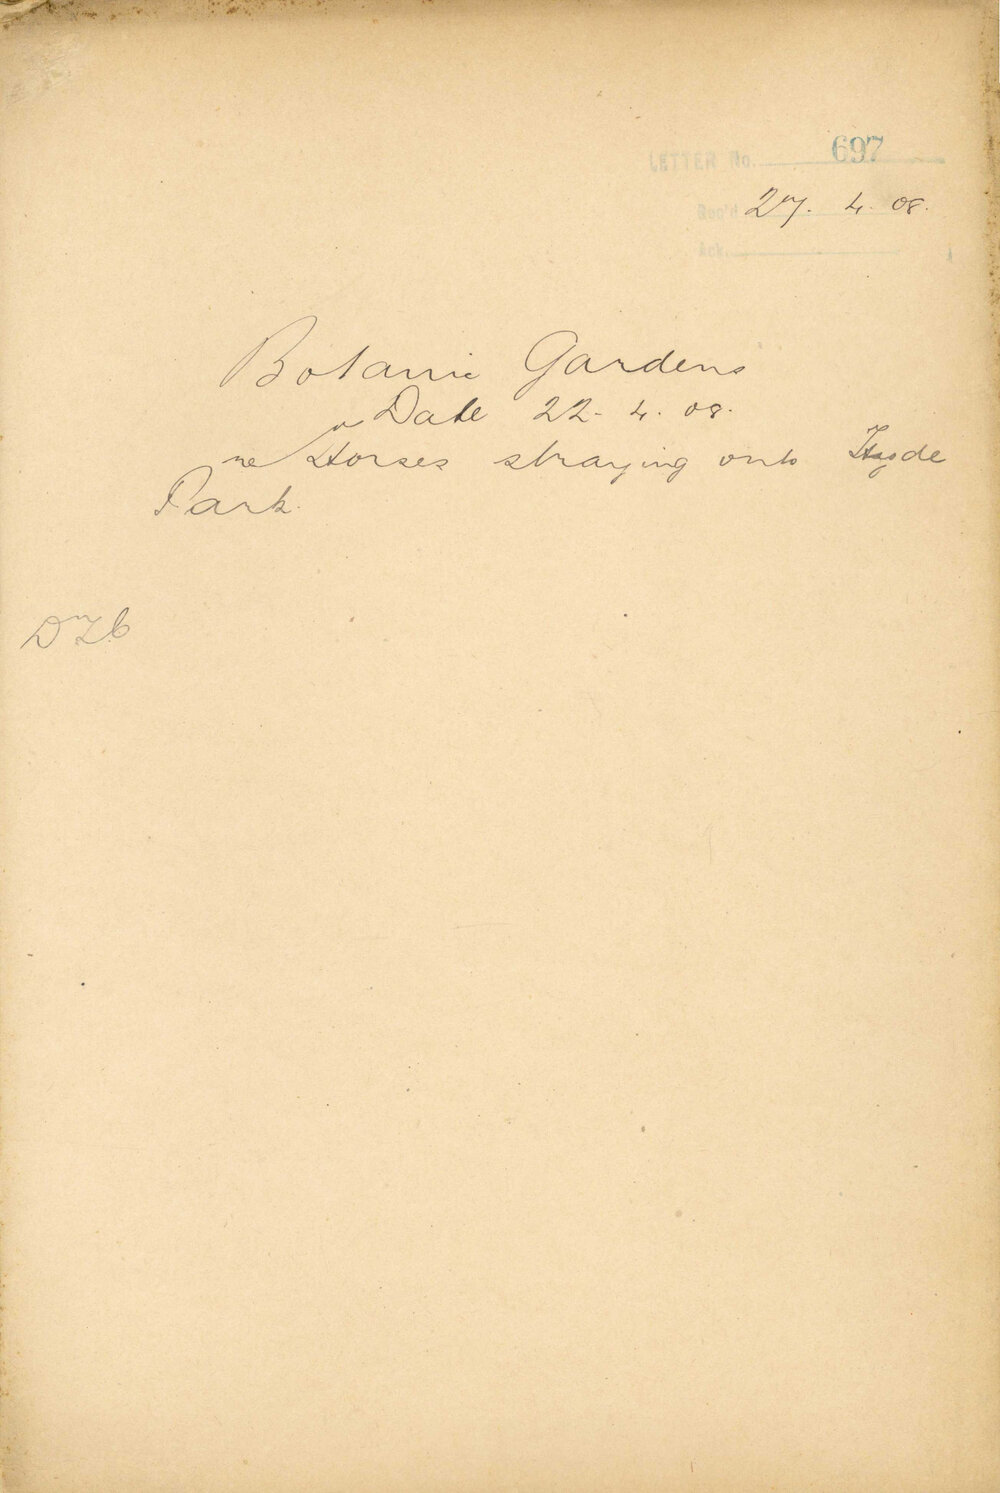 LETTER No. 697
Rec'd 27. 4. 08.
Ack.
Botanic Gardens
Date 22. 4. 08.
re Horses straying onto Hyde
Park.